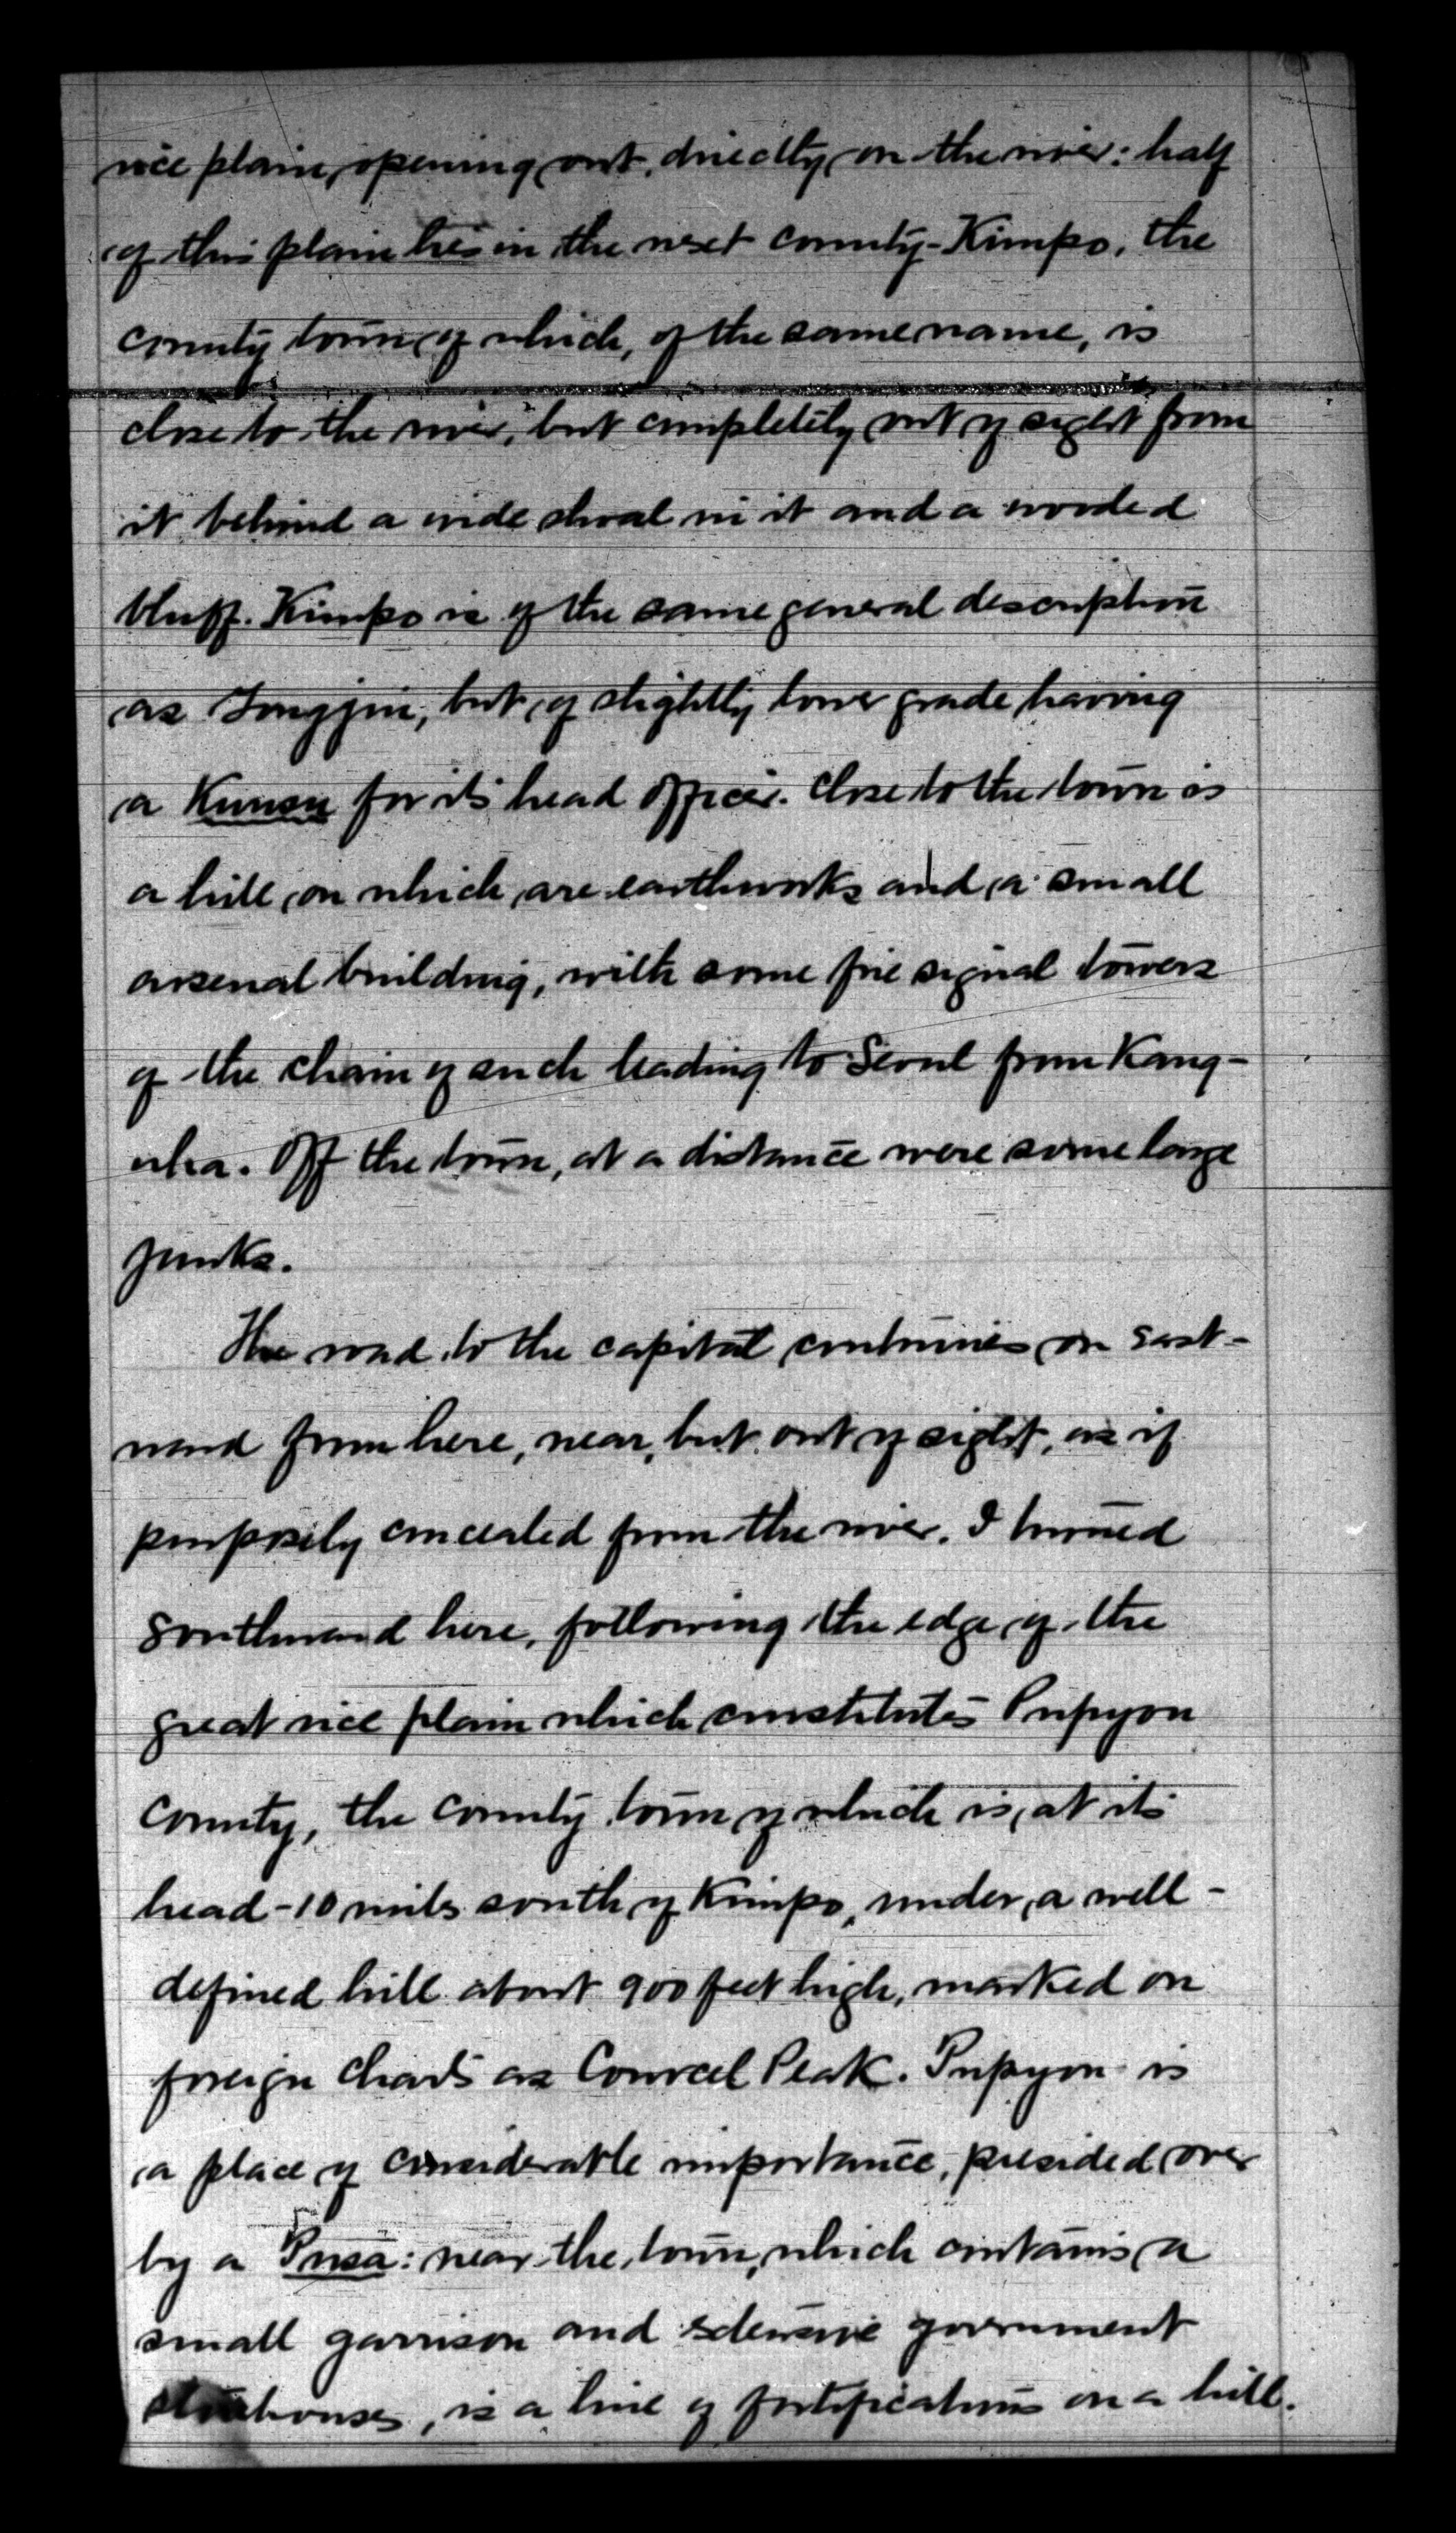 rice plain, opening out directly on the river: half
of this plain lies in the next county - Kimpo, the
county town of which, of the same name, is
close to the river, but completely out of sight from
it behind a wide shoal in it and a wooded
bluff. Kimpo is of the same general description
as Tongjin, but of slightly lower grade having
a Kunsu for its head officer. Close to the town is
a hill on which are earthworks and a small
arsenal building, with some fire signal towers
of the chain of such leading to Seoul from Kang-
wha. Off the town, at a distance were some large
junks.
The road to the capital continues on east-
ward from here, near, but out of sight, as if
purposely concealed from the river. I turned
southward here, following the edge of the
great rice plain which constitutes Pupyon
County, the county town of which is at its
head - 10 miles south of Kimpo, under a well-
defined hill about 900 feet high, marked on
foreign charts as Peak. Pupyon is
a place of considerable importance, presided over
by a Pusa: near the town, which contains a
small garrison and extensive government
storehouses, is a line of fortifications on a hill.